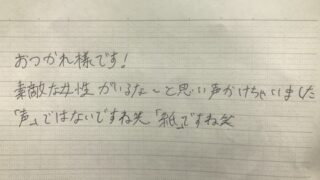 おつかれ様です!
素敵な女性がいるな〜と思い声かけちゃいました
「声」ではないですね笑 「紙」ですね笑